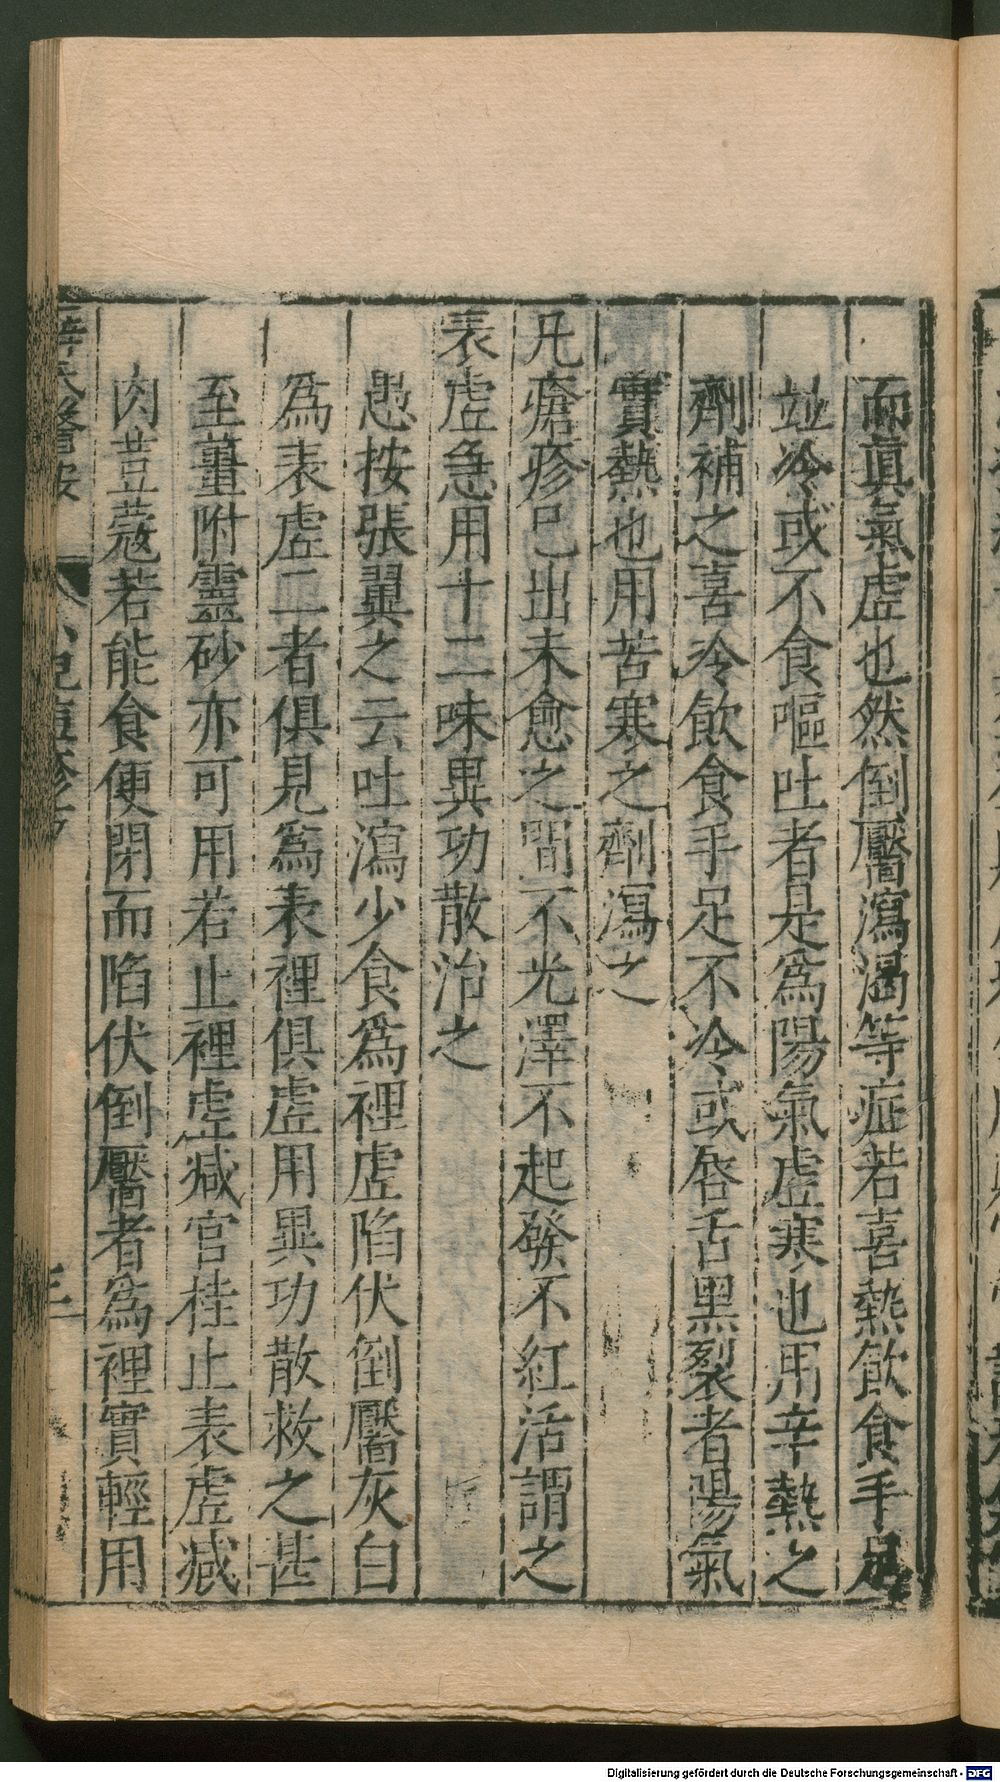 而眞氣虛也然倒靨瀉渴等症若喜熱飲食手足
竝冷或不食嘔吐者是爲陽氣虛寒也用辛熱之
劑補之喜冷飲食手足不冷或唇舌黑裂者陽氣
實熱也用苦寒之劑瀉之
凡瘡疹已出未愈之間不光澤不起發不紅活謂之
表虛急用十二味異功散治之
愚按張翼之云吐瀉少食爲裡虛陷伏倒靨灰白
爲表虛二者俱見爲表裡俱虛用異功散救之甚
至薑附靈砂亦可用若止裡虛减官桂止表虛减
肉荳蔻若能食便閉而陷伏倒靨者爲裡實輕用
薛氏醫按
小兒痘疹方
三
Digitalisierung gefördert durch die Deutsche Forschungsgemeinschaft - DFG